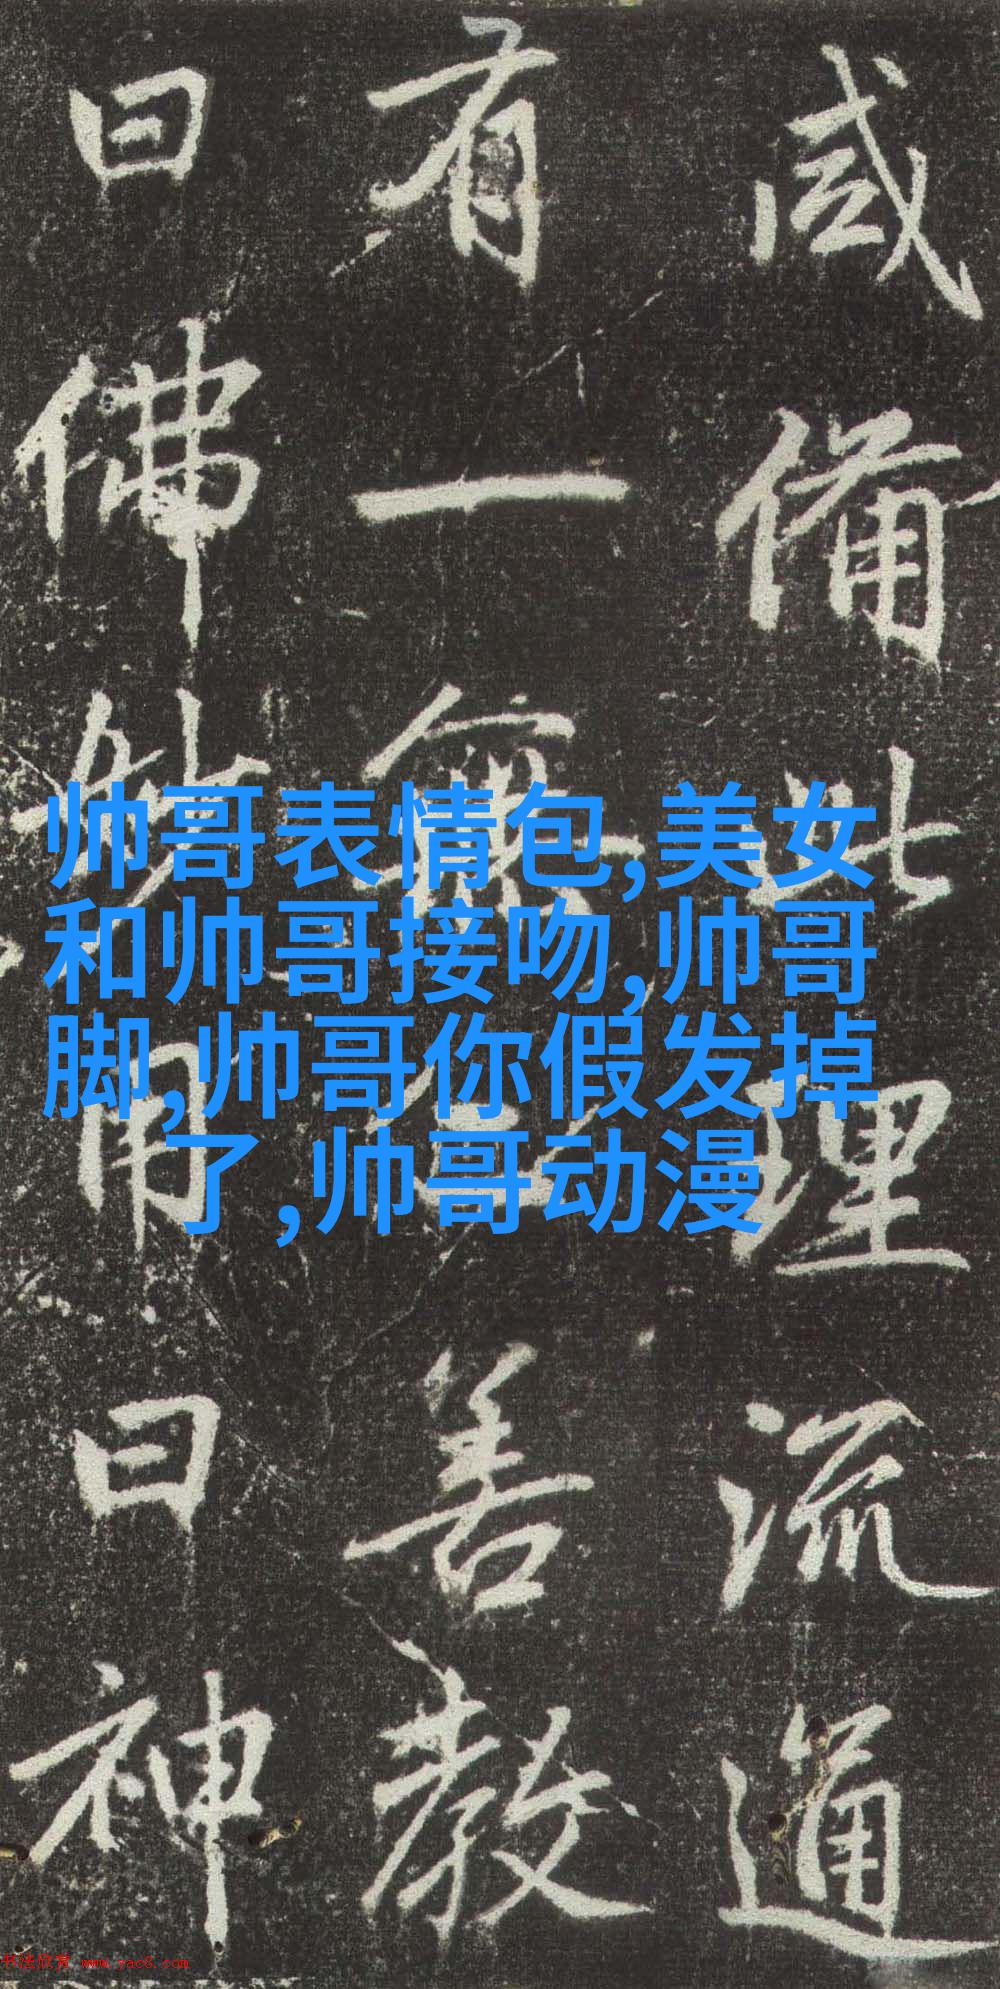 咸備此理流通
有一無善教
曰佛妙用曰神
帅哥表情包,美女
和帅哥接吻,帅哥
脚,帅哥你假发掉
了,帅哥动漫
书法欣赏 www.yac8.com